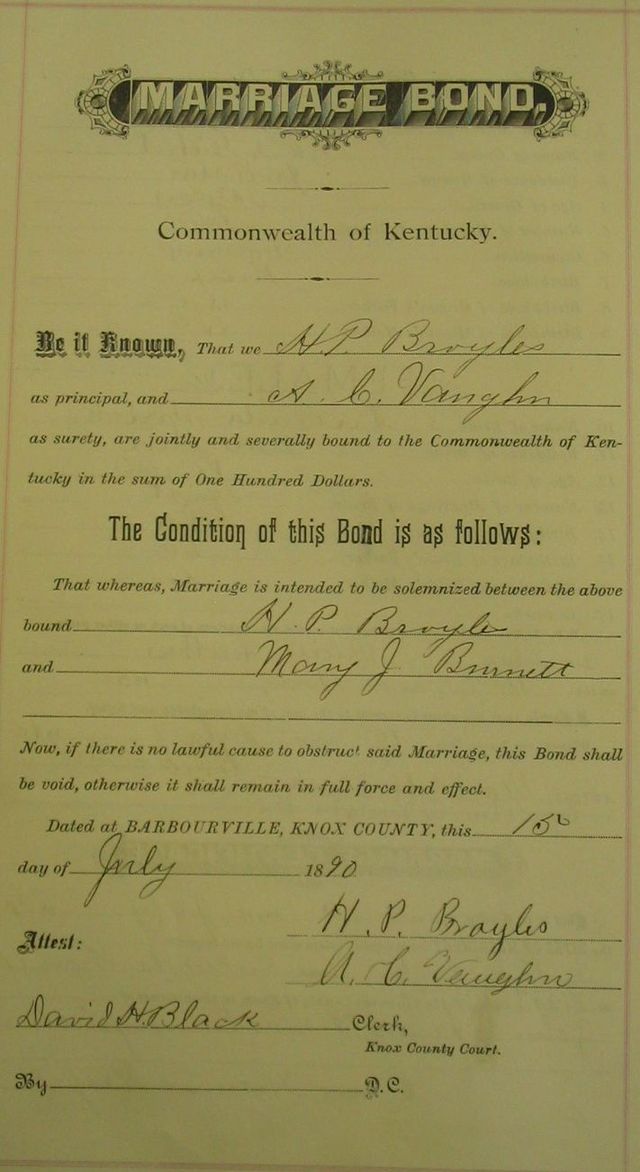 MARRIAGE BOND.
Commonwealth of Kentucky.
Be it Known, That we H. P. Broyles
as principal, and A. C. Vaughn
as surety, are jointly and severally bound to the Commonwealth of Ken-
tucky in the sum of One Hundred Dollars.
The Condition of this Bond is as follows:
That whereas, Marriage is intended to be solemnized between the above
bound H. P. Broyles
and Mary J. Burnett
Now, if there is no lawful cause to obstruct said Marriage, this Bond shall
be void, otherwise it shall remain in full force and effect.
Dated at BARBOURVILLE, KNOX COUNTY, this 15
day of July 1890
H. P. Broyles
Attest:
A. C. Vaughn
David H. Black Clerk,
Knox County Court.
By D. C.